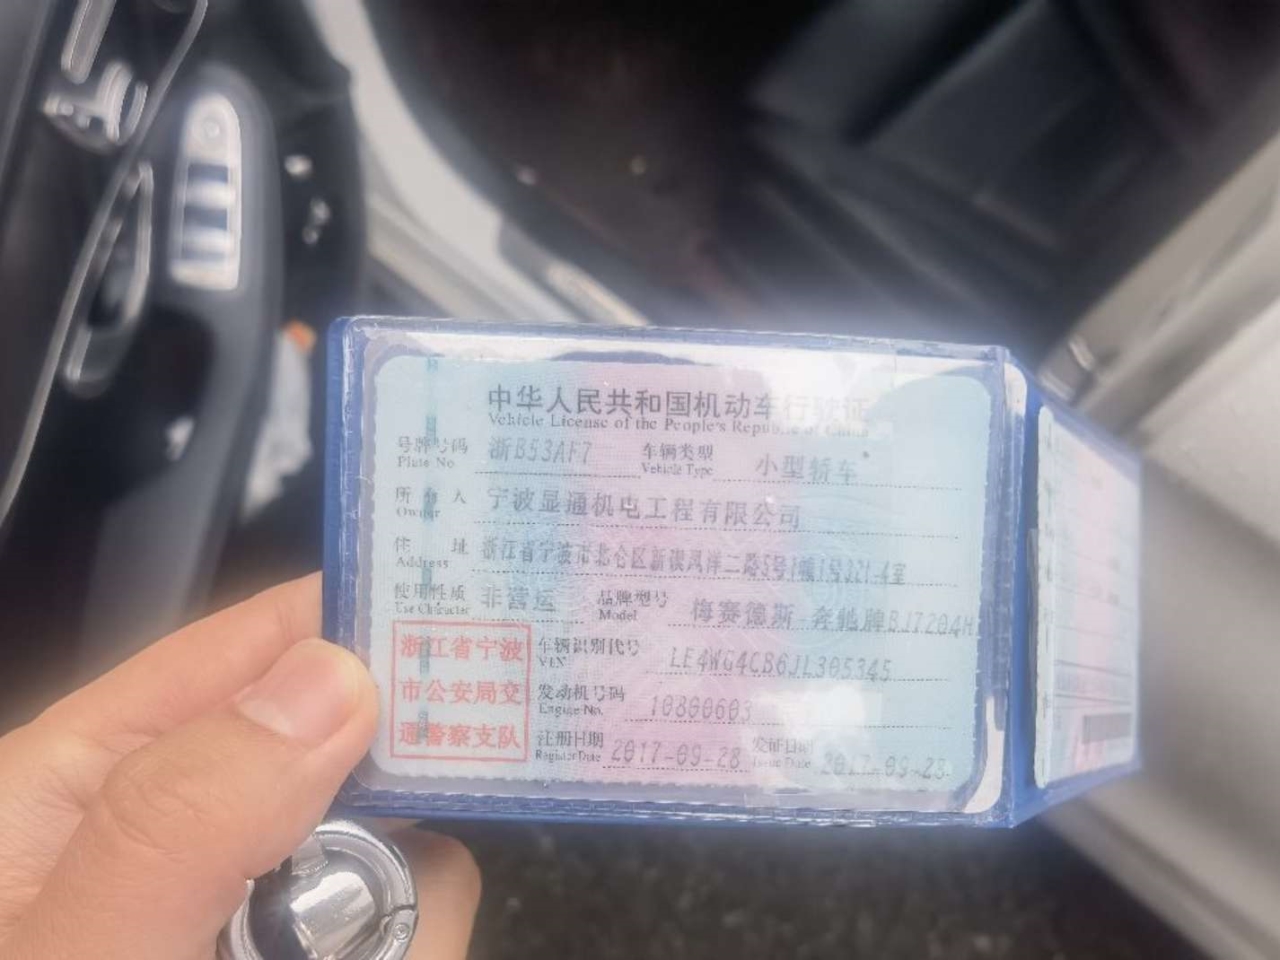 中华人民共和国机动车行驶证
Vehicle License of the People's Republic of China
号牌号码 浙B53AF7 车辆类型 小型轿车
Plate No. Vehicle Type
所有人 宁波显通机电工程有限公司
Owner
住址 浙江省宁波市北仑区新碶凤洋二路5号1幢1号321-4室
Address
使用性质 非营运 品牌型号 梅赛德斯-奔驰牌BJ7204H
Use Character Model
浙江省宁波
市公安局交
通警察支队
车辆识别代号 LE4WG4CB6JL305345
VIN
发动机号码 10800603
Engine No.
注册日期 2017-09-28 发证日期 2017-09-28
Register Date Issue Date